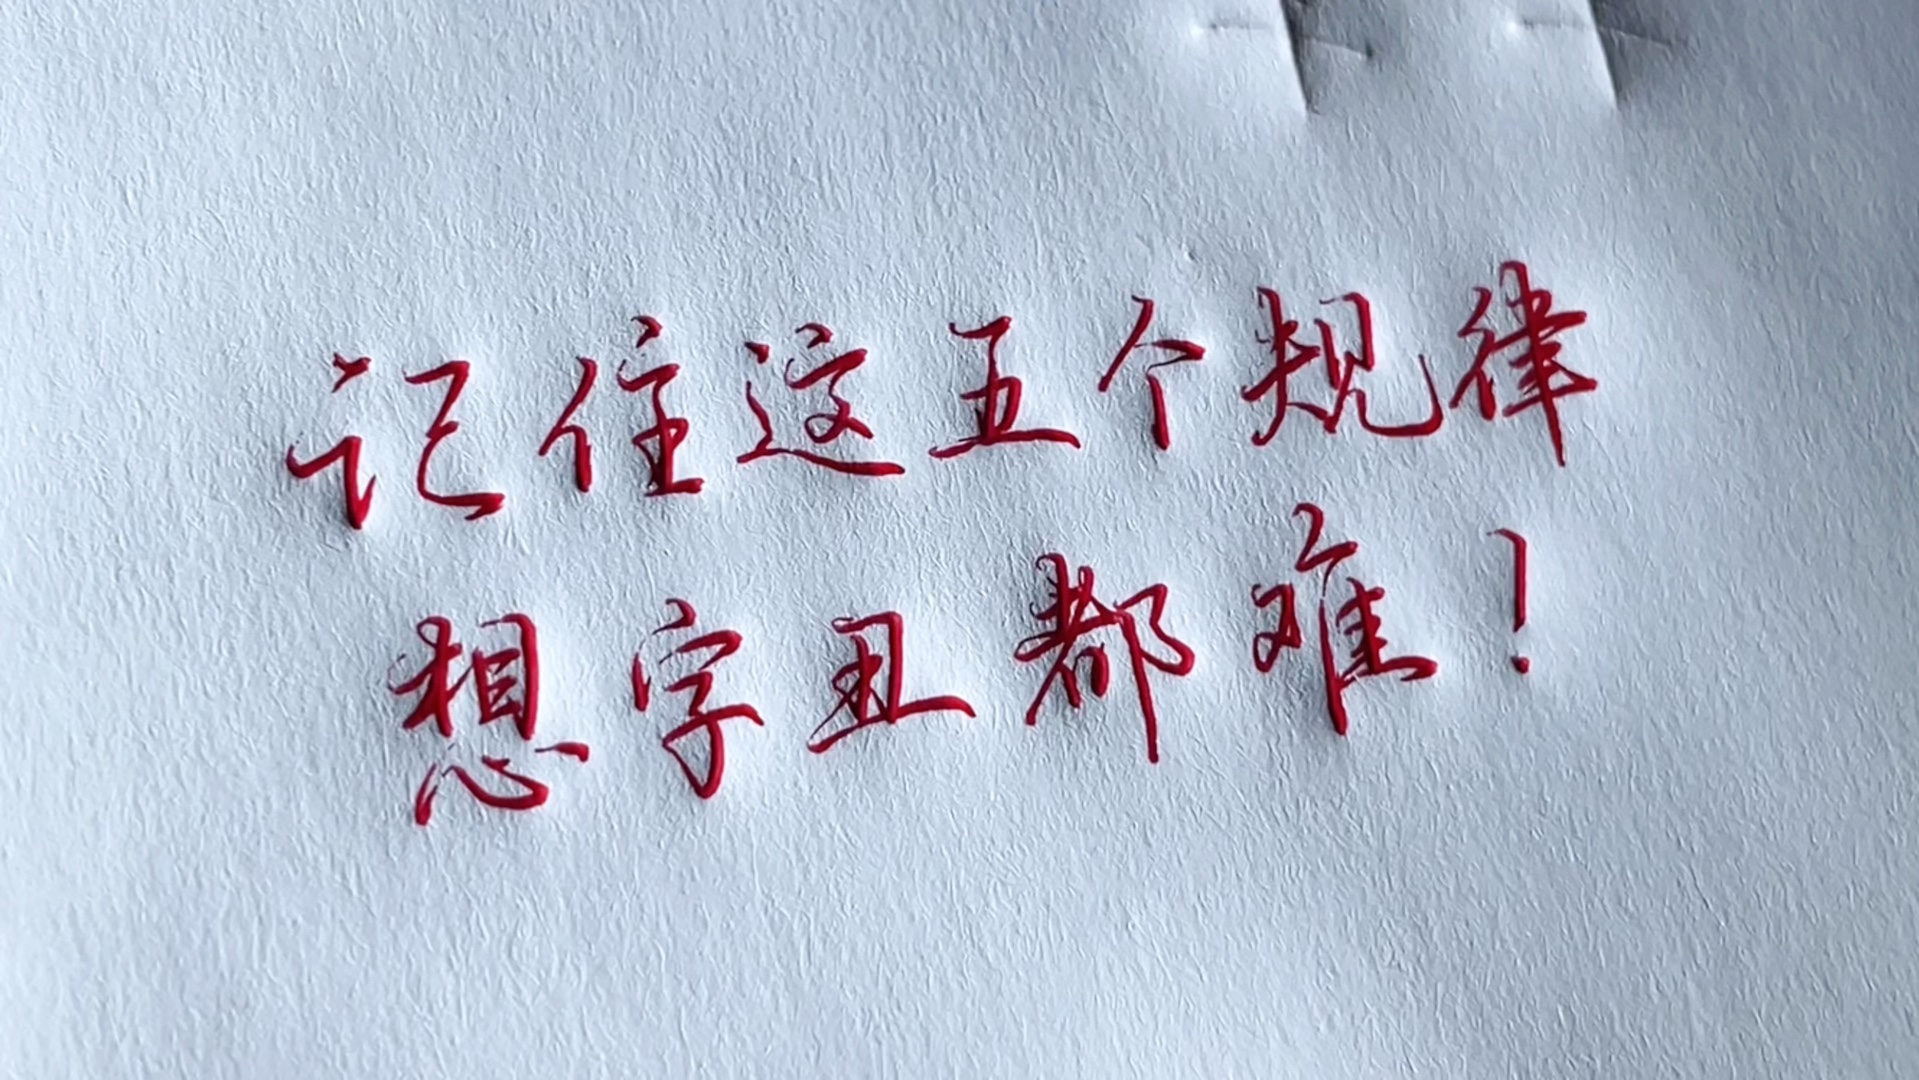 记住这五个规律
想字丑都难！